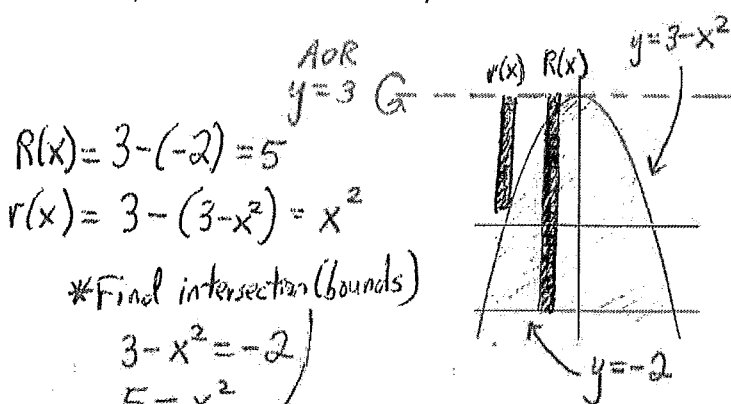 AoR
y=3
r(x) R(x)
y=3-x²
R(x)= 3-(-2) =5
r(x)= 3-(3-x²) = x²
*Find intersection (bounds)
3-x²=-2
5=x²
y=-2